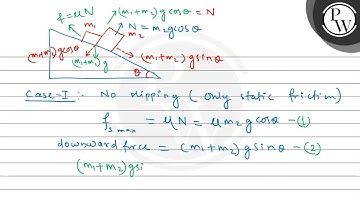 f=μN
m₁
(m₁+m₂)gcosθ = N
N = m₂gcosθ
m₂
(m₁+m₂)gcosθ
(m₁+m₂)g
(m₁+m₂)gsinθ
θ
PW
Case-I :- No slipping (only static friction)
fₛ ₘₐₓ = μN = μm₂gcosθ -①
downward force = (m₁+m₂)gsinθ -②
(m₁+m₂)gsi